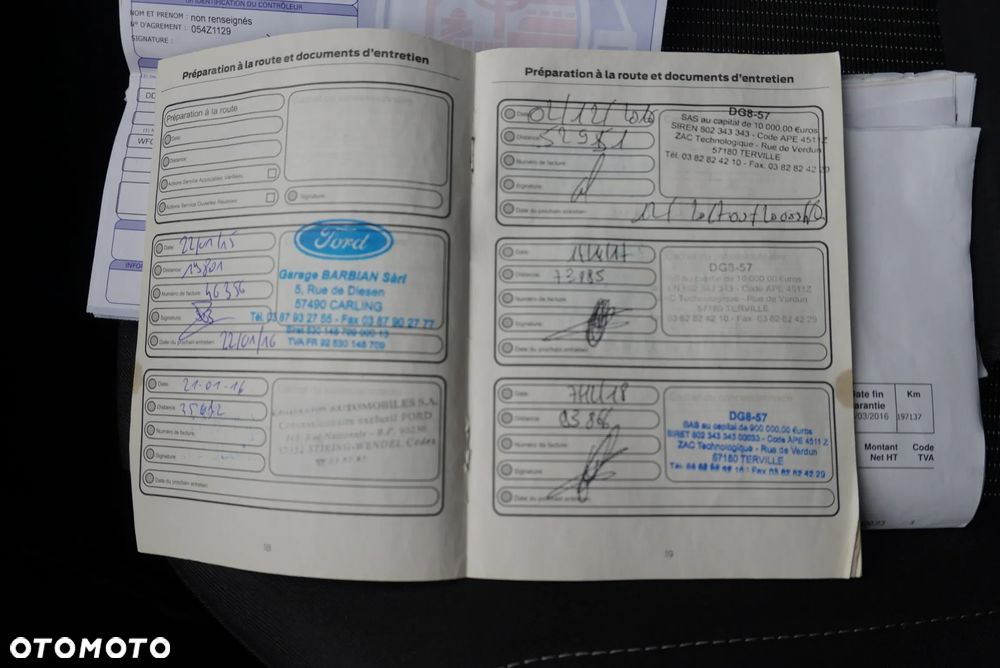 UN IDENTIFICATION DU CONTRÔLEUR
NOM ET PRÉNOM : non renseignés
N° D'AGREMENT : 054Z1129
SIGNATURE :
Préparation à la route et documents d'entretien
Préparation à la route
Date:
Distance:
Actions Service Applicables Vérifiées
Actions Service Ouvertes Réunies
Signature:
Date: 22/01/15
Distance: 19801
Numéro de facture: 46356
Signature:
Date du prochain entretien: 22/01/16
Ford
Garage BARBIAN Sàrl
5, Rue de Diesen
57490 CARLING
Tél. 03 87 93 27 55 - Fax 03 87 90 27 77
TVA FR 92 830 148 709
Date: 21-01-16
Distance:
Numéro de facture:
Signature:
Date du prochain entretien:
AUTOMOBILES S.A.
Concessionnaire exclusif FORD
18
Préparation à la route et documents d'entretien
Date: 02/12/2016
Distance:
Numéro de facture:
Signature:
Date du prochain entretien:
DG8-57
SAS au capital de 10 000,00 €uros
SIREN 802 343 343 - Code APE 4511Z
ZAC Technologique - Rue de Verdun
57180 TERVILLE
Tél. 03 82 82 42 10 - Fax. 03 82 82 42 29
Date:
Distance: 73885
Numéro de facture:
Signature:
Date du prochain entretien:
DG8-57
SAS au capital de 10 000,00 €uros
SIREN 802 343 343 - Code APE 4511Z
ZAC Technologique - Rue de Verdun
57180 TERVILLE
03 82 82 42 10 - Fax. 03 82 82 42 29
Date:
Distance: 93866
Numéro de facture:
Signature:
Date du prochain entretien:
DG8-57
SAS au capital de 900 000,00 €uros
SIRET 802 343 343 00033 - Code APE 4511 Z
ZAC Technologique - Rue de Verdun
57180 TERVILLE
Fax 03 82 82 42 29
19
Date fin Km
garantie
/03/2016 197137
Montant Code
Net HT TVA
OTOMOTO